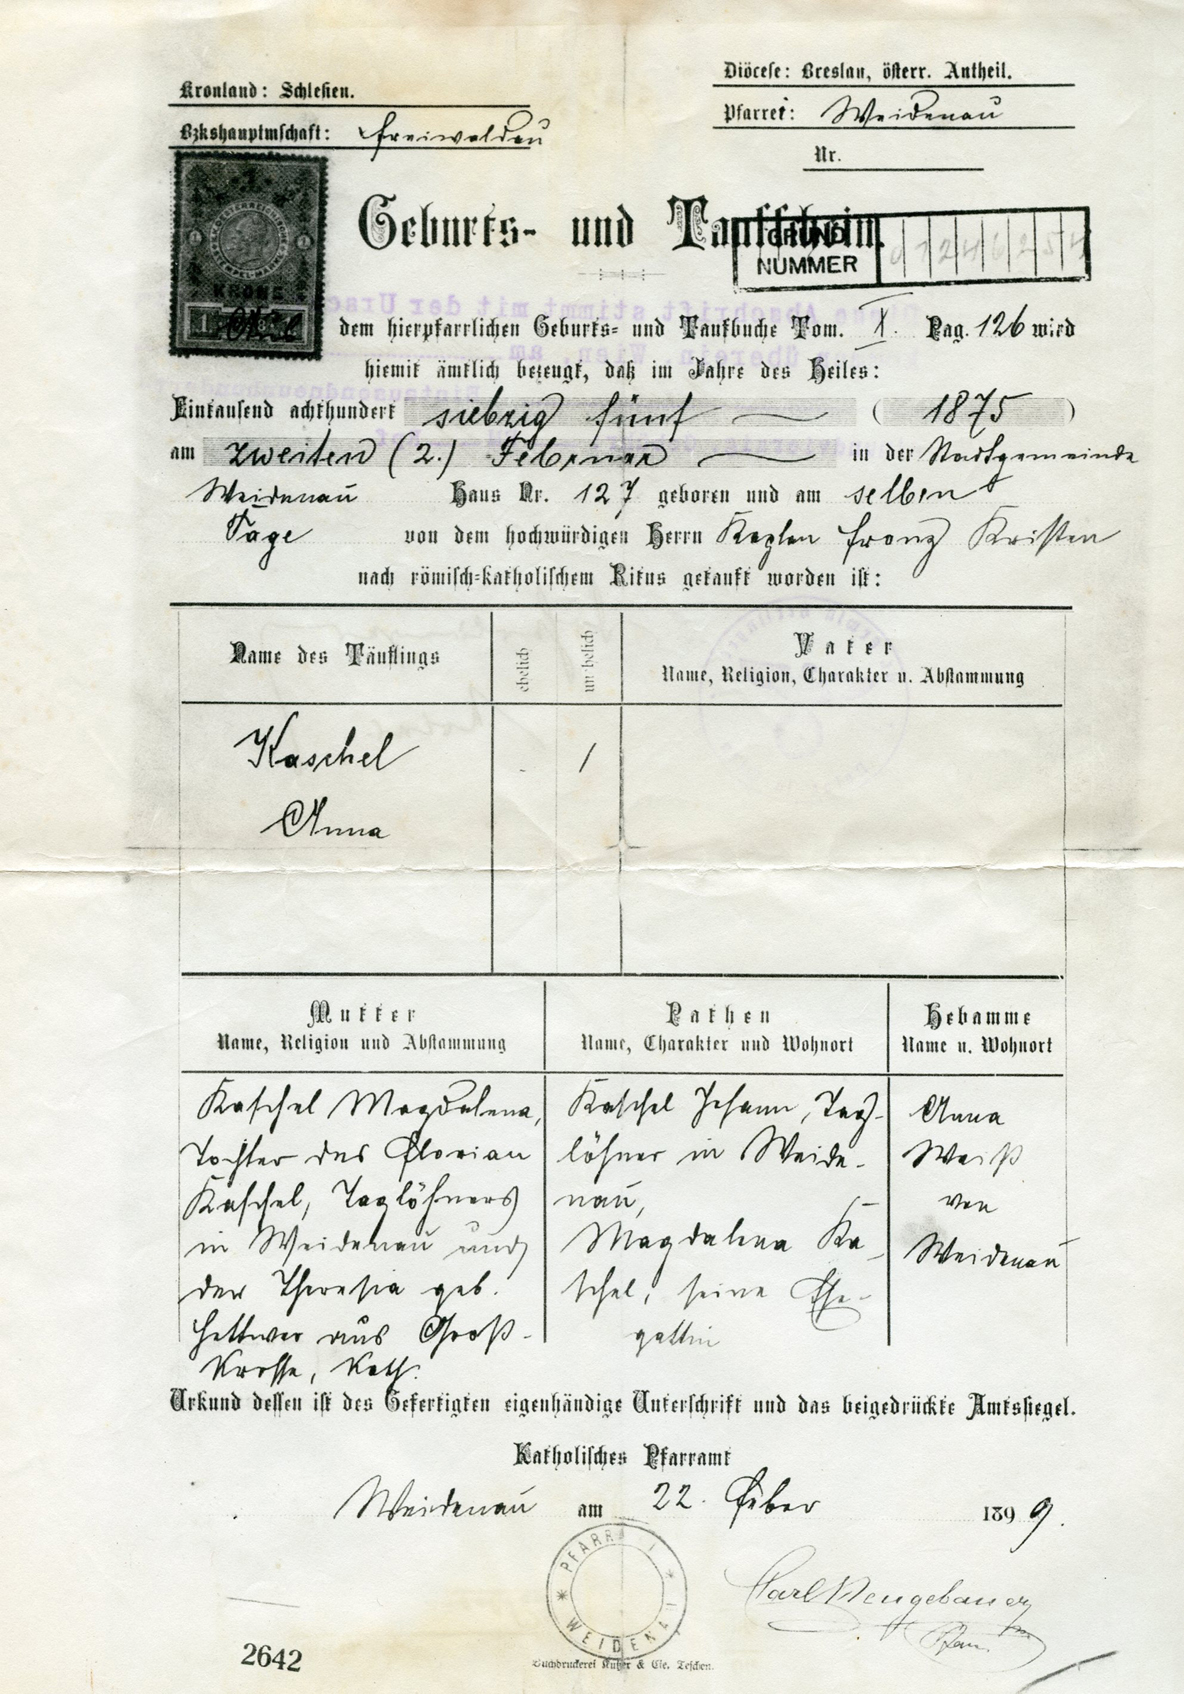 Kronland: Schlesien.
Diöcese: Breslau, österr. Antheil.
Bzkshauptmschaft: Freiwaldau
Pfarrei: Weidenau
Nr.
Geburts- und Taufschein.
GRUND
NUMMER
KRONE
1
dem hierpfarrlichen Geburts- und Taufbuche Tom. X. Pag. 126 wird
hiemit ämtlich bezeugt, daß im Jahre des Heiles:
Eintausend achthundert siebzig fünf (1875)
am zweiten (2.) Februar in der Stadtgemeinde
Weidenau Haus Nr. 127 geboren und am selben
Tage von dem hochwürdigen Herrn Kaplan Franz Kristen
nach römisch-katholischem Ritus getauft worden ist:
Name des Täuflings
ehelich
unehelich
Vater
Name, Religion, Charakter u. Abstammung
Kaschel
/
Anna
Mutter
Name, Religion und Abstammung
Pathen
Name, Charakter und Wohnort
Hebamme
Name u. Wohnort
Kaschel Magdalena,
Tochter des Florian
Kaschel, Taglöhners
in Weidenau und
der Theresia geb.
Hettwer aus Groß-
Krosse, kath.
Kaschel Johann, Tag-
löhner in Weide-
nau,
Magdalena Ka-
schel, seine Ehe-
gattin
Anna
Weiß
von
Weidenau
Urkund dessen ist des Gefertigten eigenhändige Unterschrift und das beigedrückte Amtssiegel.
Katholisches Pfarramt
Weidenau am 22. Feber 1899.
PFARR
WEIDENA
Carl Neugebauer
Pfarr.
2642
Buchdruckerei Kutzer & Cie. Teschen.